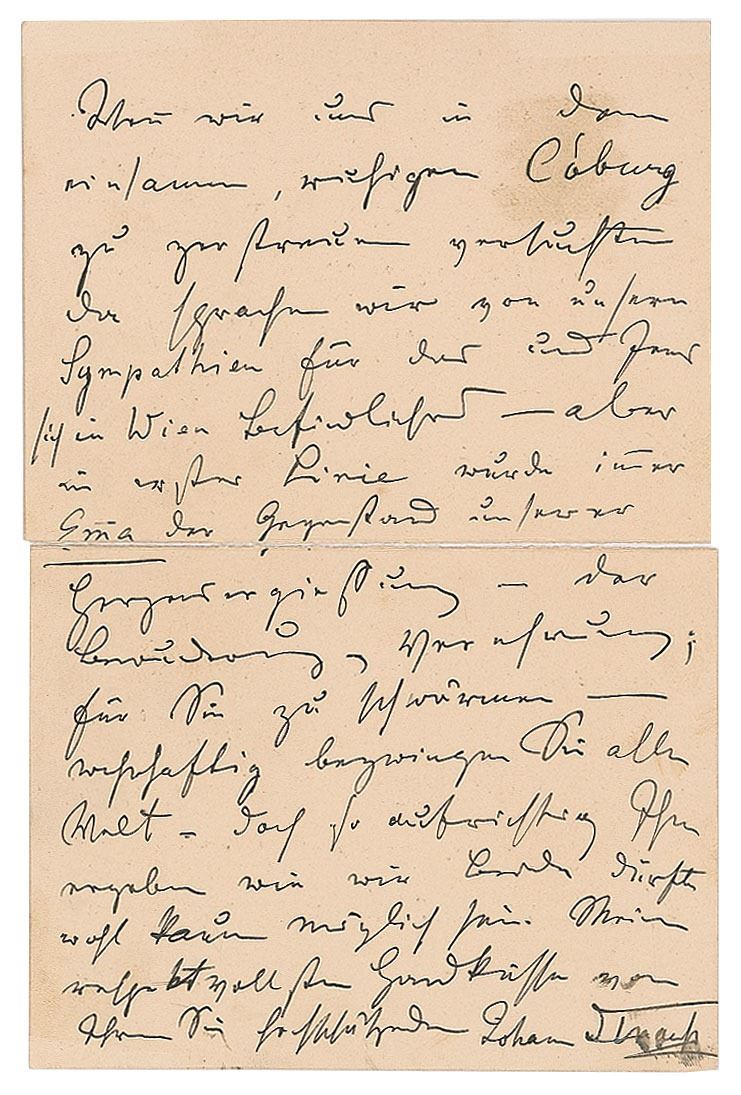 Wenn wir uns in dem
einsamen, ruhigen Coburg
zu zerstreuen versuchten
da sprachen wir von unsern
Sympathien für das und Jenes
sich in Wien Befindliches — aber
in erster Linie wurde immer
der Gegenstand unserer
Herzensergießung — der
Bewunderung, Verehrung;
für Sie zu schwärmen —
wahrhaftig bezwingen Sie alle
Welt – doch so aufrichtig Ihnen
ergeben wie wir Beide dürfte
wohl kaum möglich sein. Meinen
respektvollsten Handküsse von
Ihren Sie hochschätzenden Johann Strauss